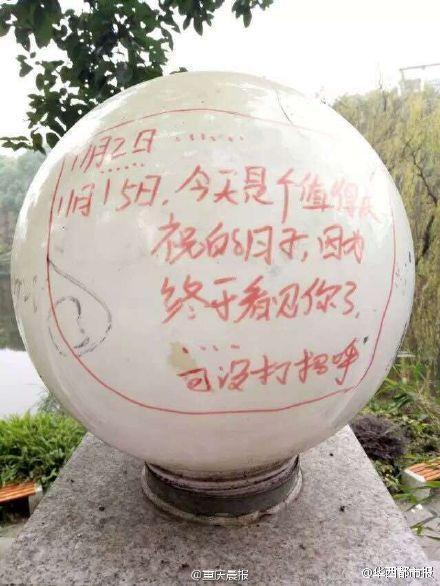 11月2日......
11月15日,今天是个值得庆
祝的日子,因为
终于看见你了,
.....
可没打招呼
@重庆晨报
@华西都市报